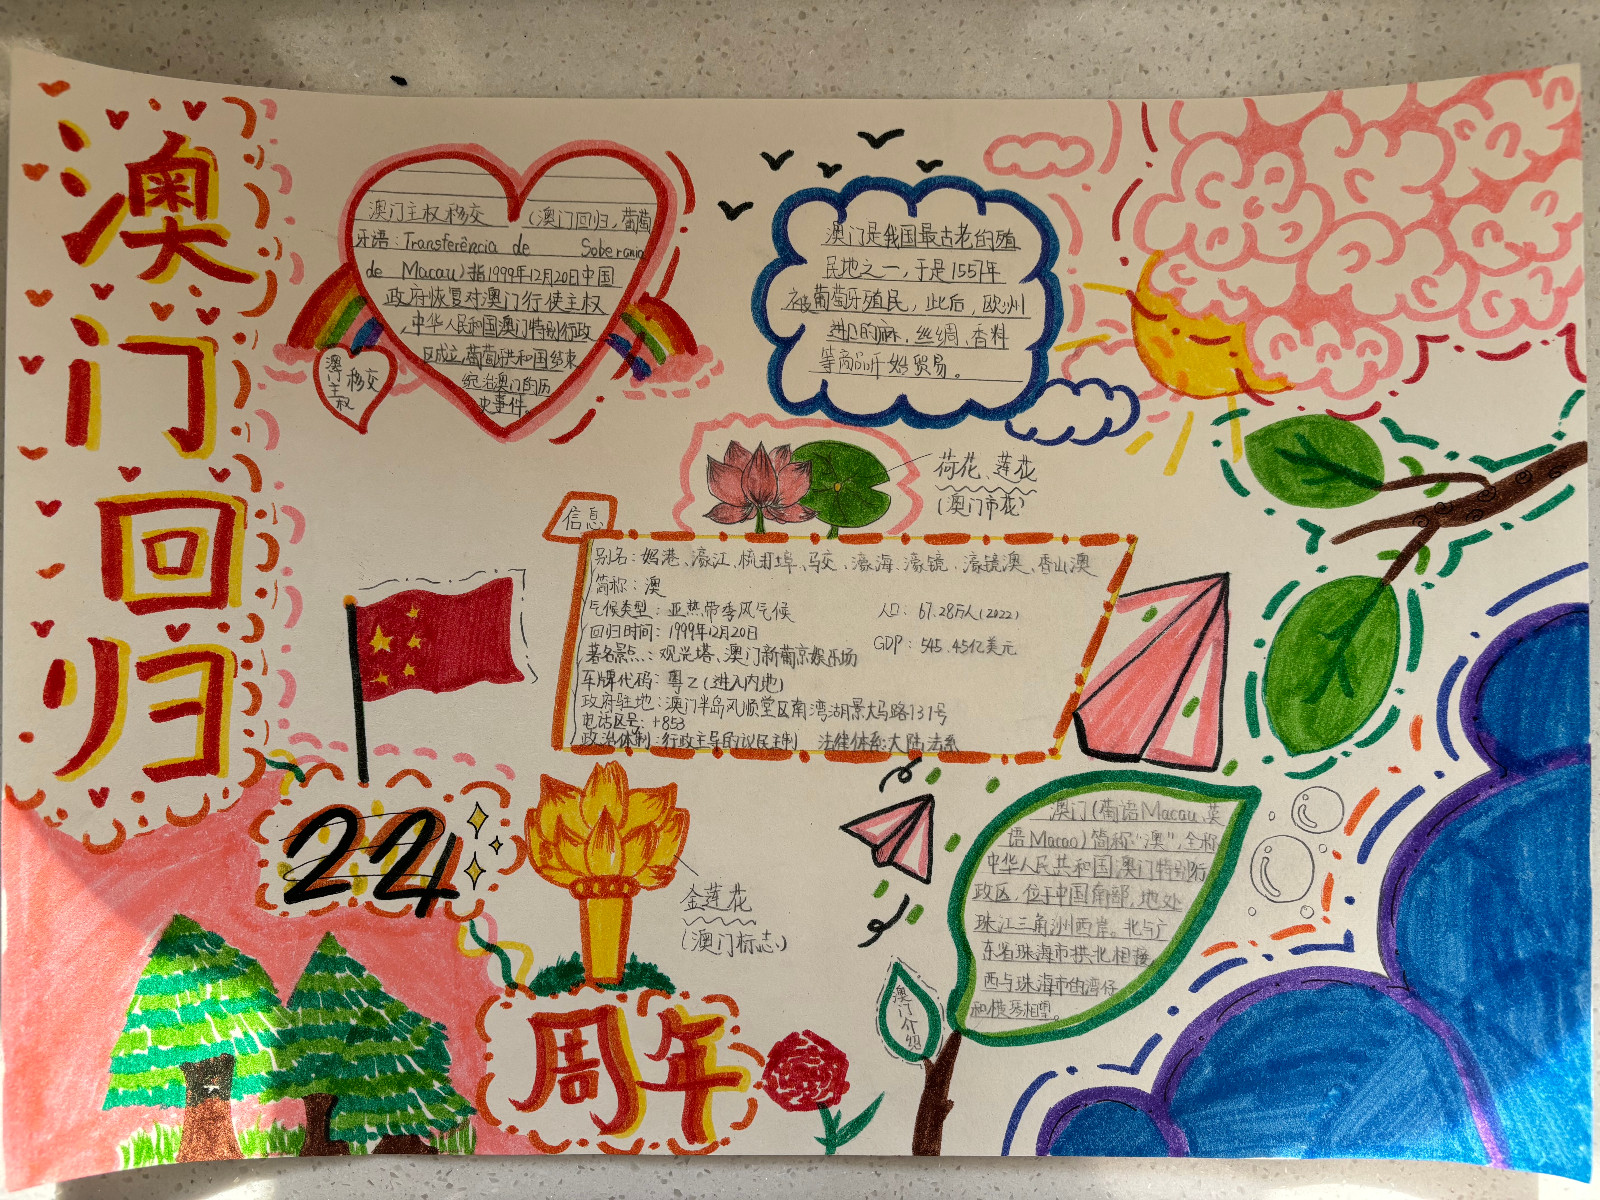 澳
门
回
归
澳门主权移交 (澳门回归，葡萄
牙语：Transferência de Soberania
de Macau)指1999年12月20日中国
政府恢复对澳门行使主权
，中华人民和国澳门特别行政
区成立，葡萄牙共和国结束
统治澳门的历
史事件。
澳门
主权
移交
澳门是我国最古老的殖
民地之一，于是1557年
被葡萄牙殖民，此后，欧洲
进口的麻、丝绸、香料
等商品开始贸易。
荷花、莲花
(澳门市花)
信息
别名：妈港、濠江、梳打埠、马交、濠海、濠镜、濠镜澳、香山澳
简称：澳
气候类型：亚热带季风气候 人口：67.28万人(2022)
回归时间：1999年12月20日
GDP：545.45亿美元
著名景点：观光塔、澳门新葡京娱乐场
车牌代码：粤Z(进入内地)
政府驻地：澳门半岛风顺堂区南湾湖景大马路131号
电话区号：+853
政治体制：行政主导的议民主制 法律体系：大陆法系
24
周年
金莲花
(澳门标志)
澳门介绍
澳门(葡语Macau、英
语Macao)简称“澳”，全称
中华人民共和国澳门特别行
政区，位于中国南部，地处
珠江三角洲西岸。北与广
东省珠海市拱北相接，
西与珠海市的湾仔
和横琴相望。